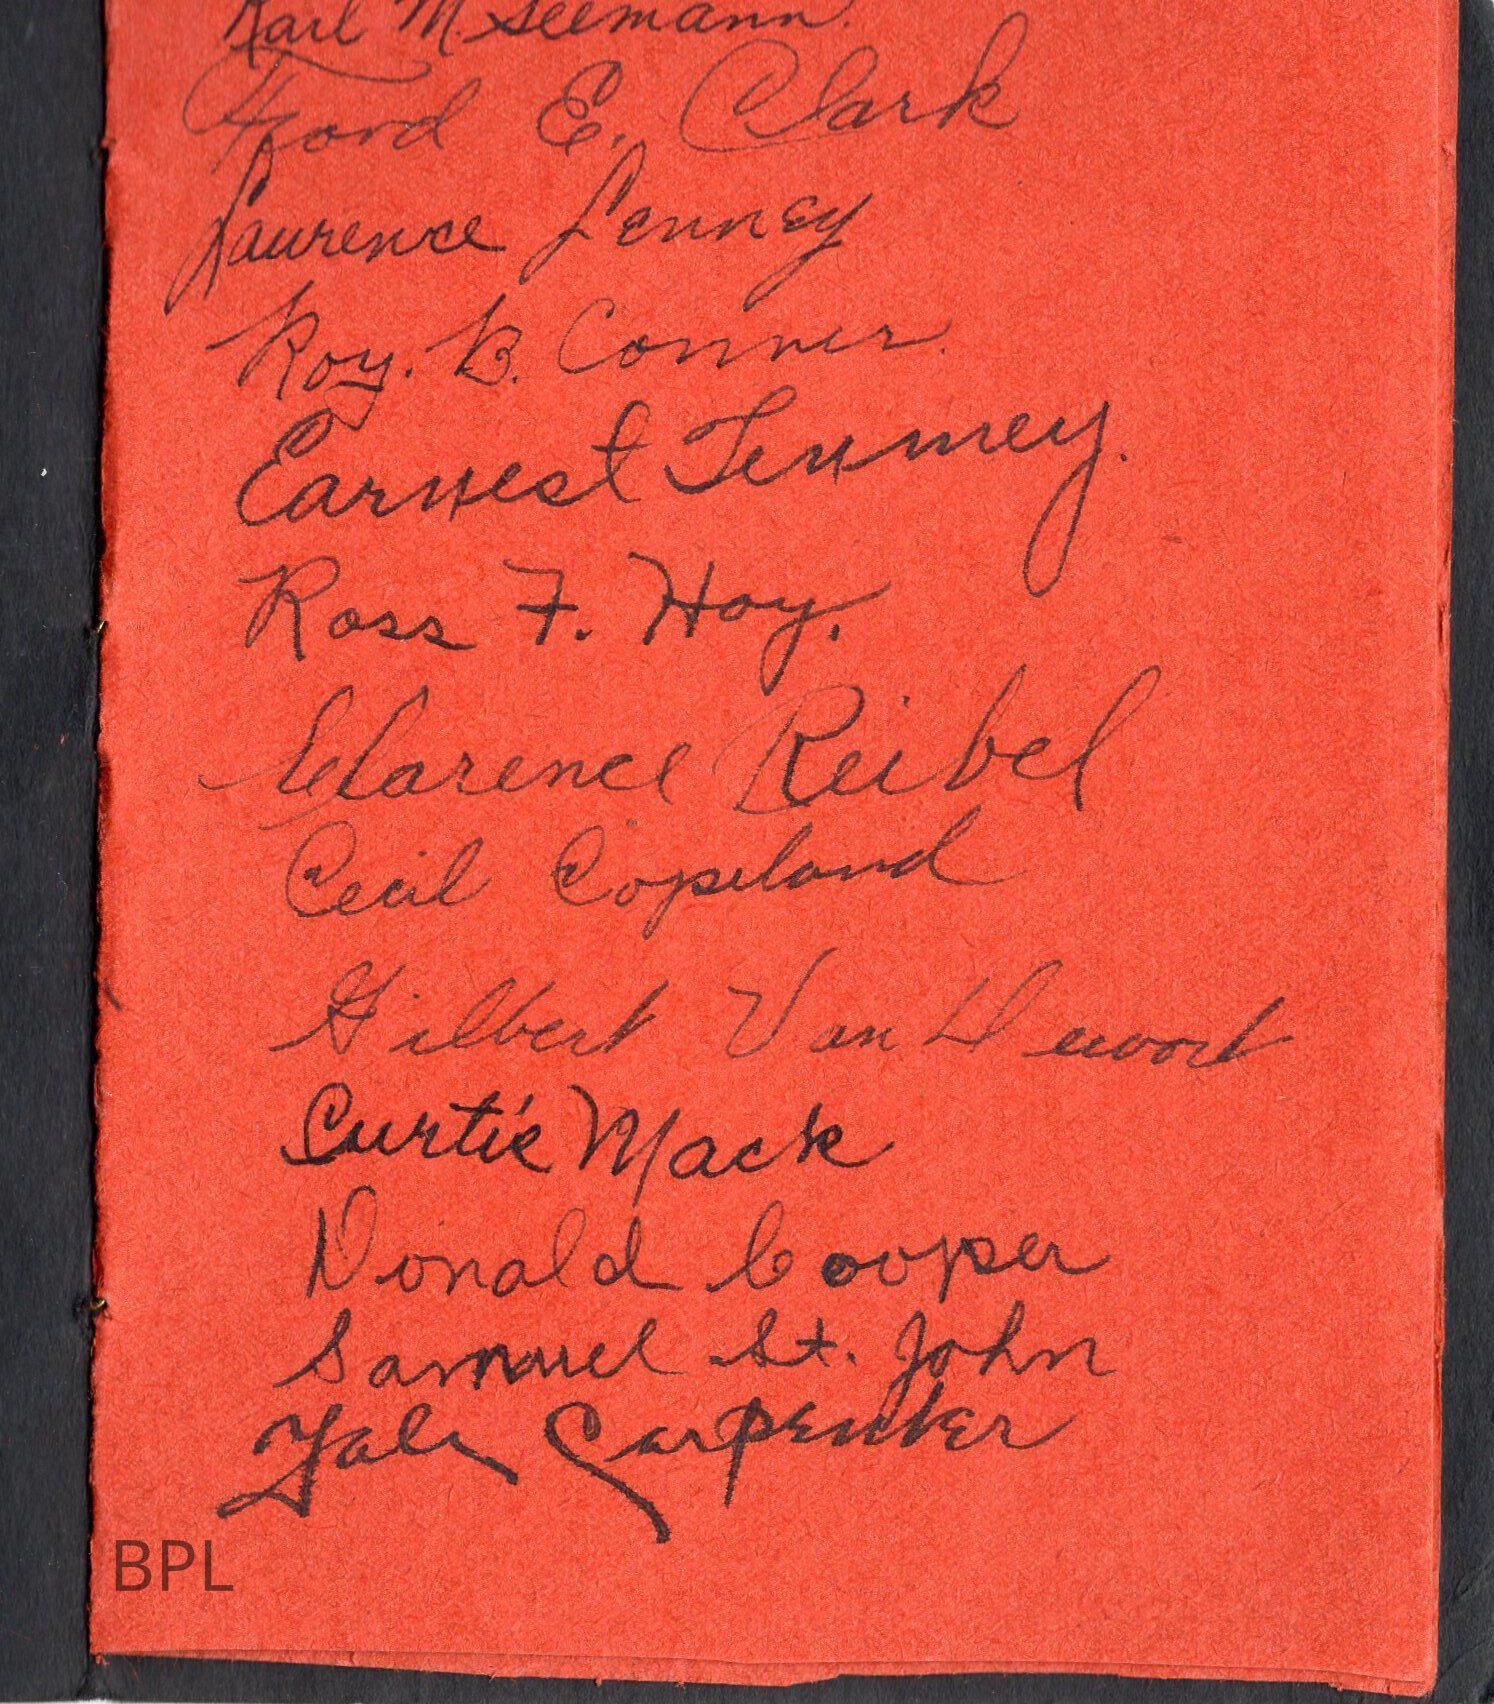 Karl M. Seemann.
Ford E. Clark
Laurence Lenney
Roy. B. Conner.
Earnest Tenney.
Ross F. Hoy.
Clarence Reibel
Cecil Copeland
Gilbert Van Dewort
Curtis Mack
Donald Cooper
Samuel St. John
Yale Carpenter
BPL